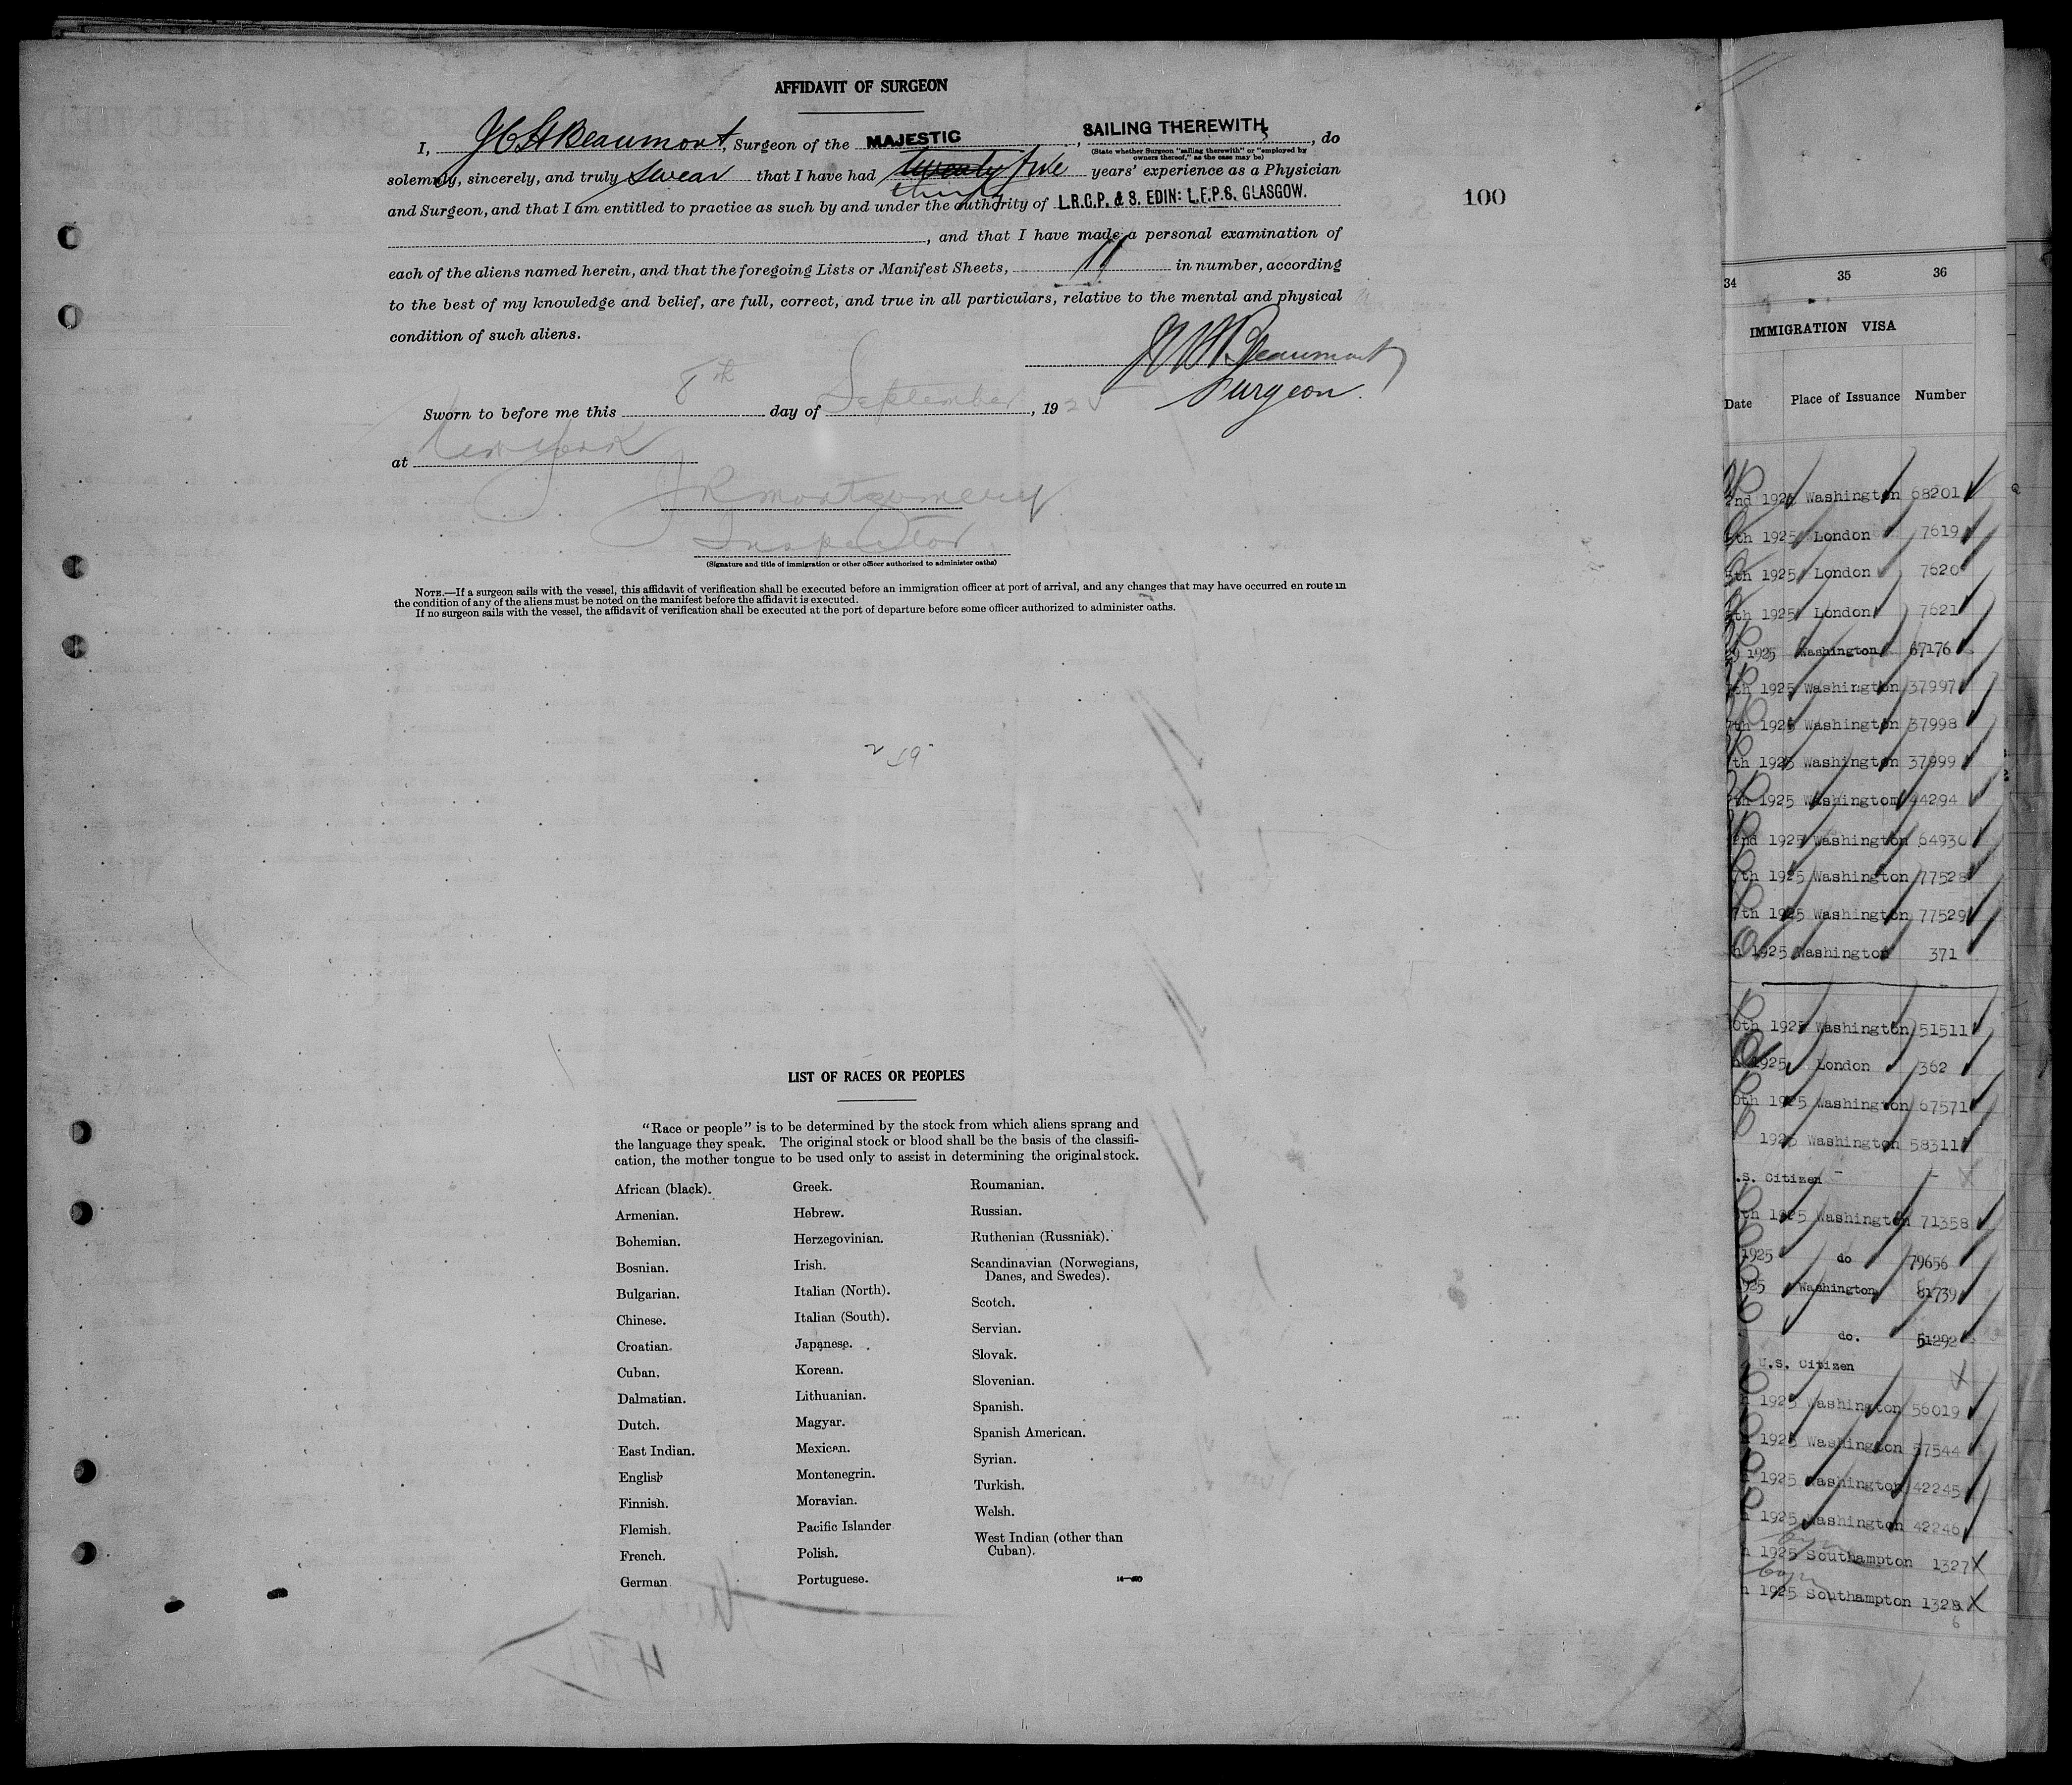 AFFIDAVIT OF SURGEON
I, J C H Beaumont, Surgeon of the MAJESTIC, SAILING THEREWITH, do
(State whether Surgeon "sailing therewith" or "employed by
owners thereof," as the case may be)
solemnly, sincerely, and truly swear that I have had twenty five years' experience as a Physician
thirty
and Surgeon, and that I am entitled to practice as such by and under the authority of L.R.C.P. & S. EDIN: L.F.P.S. GLASGOW.
100
, and that I have made a personal examination of
each of the aliens named herein, and that the foregoing Lists or Manifest Sheets, 11 in number, according
to the best of my knowledge and belief, are full, correct, and true in all particulars, relative to the mental and physical
condition of such aliens.
J C H Beaumont
Surgeon.
Sworn to before me this 8th day of September, 1925
at New York
J R Montgomery
Inspector
(Signature and title of immigration or other officer authorized to administer oaths)
NOTE.—If a surgeon sails with the vessel, this affidavit of verification shall be executed before an immigration officer at port of arrival, and any changes that may have occurred en route in
the condition of any of the aliens must be noted on the manifest before the affidavit is executed.
If no surgeon sails with the vessel, the affidavit of verification shall be executed at the port of departure before some officer authorized to administer oaths.
LIST OF RACES OR PEOPLES
"Race or people" is to be determined by the stock from which aliens sprang and
the language they speak. The original stock or blood shall be the basis of the classifi-
cation, the mother tongue to be used only to assist in determining the original stock.
African (black).
Armenian.
Bohemian.
Bosnian.
Bulgarian.
Chinese.
Croatian.
Cuban.
Dalmatian.
Dutch.
East Indian.
English
Finnish.
Flemish.
French.
German
Greek.
Hebrew.
Herzegovinian.
Irish.
Italian (North).
Italian (South).
Japanese.
Korean.
Lithuanian.
Magyar.
Mexican.
Montenegrin.
Moravian.
Pacific Islander
Polish.
Portuguese.
Roumanian.
Russian.
Ruthenian (Russniak).
Scandinavian (Norwegians,
Danes, and Swedes).
Scotch.
Servian.
Slovak.
Slovenian.
Spanish.
Spanish American.
Syrian.
Turkish.
Welsh.
West Indian (other than
Cuban).
34 35 36
IMMIGRATION VISA
Date Place of Issuance Number
2nd 1925 Washington 68201
th 1925 London 7619
th 1925 London 7620
th 1925 London 7621
1925 Washington 67176
th 1925 Washington 37997
7th 1925 Washington 37998
th 1925 Washington 37999
th 1925 Washington 44294
2nd 1925 Washington 64930
7th 1925 Washington 77528
7th 1925 Washington 77529
h 1925 Washington 371
0th 1925 Washington 51511
1925 London 362
0th 1925 Washington 67571
1925 Washington 58311
.S. Citizen - -
th 1925 Washington 71358
1925 do 79656
925 Washington 81739
do. 51292
U.S. Citizen
1925 Washington 56019
1925 Washington 57544
1925 Washington 42245
1925 Washington 42246
h 1925 Southampton 1327
h 1925 Southampton 1328
6